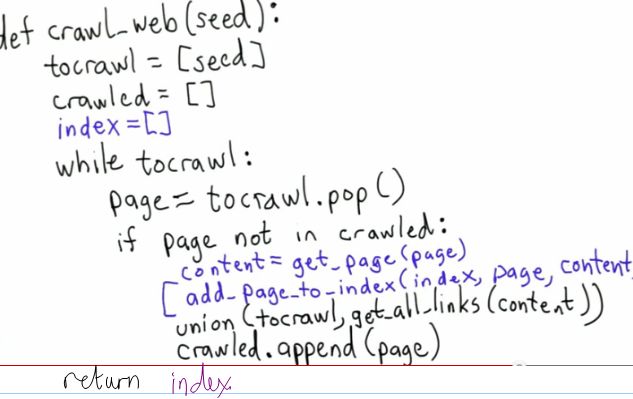 def crawl_web(seed):
tocrawl = [seed]
crawled = []
index=[]
while tocrawl:
page= tocrawl.pop()
if page not in crawled:
content= get_page(page)
[ add_page_to_index(index, page, content
union(tocrawl, get_all_links(content))
crawled.append(page)
return index